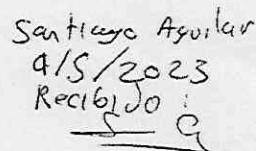 Santiago Aguilar
4/5/2023
Recibido:
S G